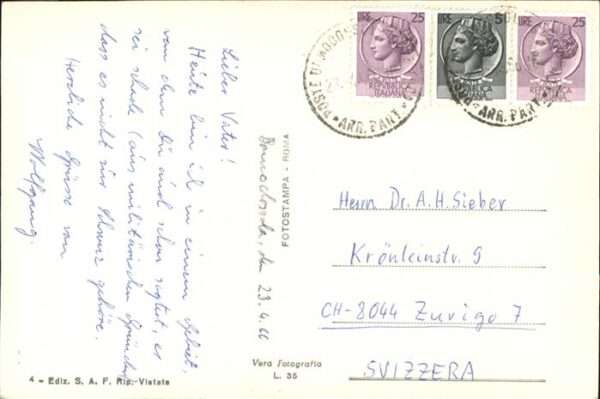 Lieber Vater!
Heute bin ich in einem Gebiet,
von dem Du auch schon sagtest, es
sei schade (aus militärischen Gründen)
dass es nicht zur Schweiz gehöre.
Herzliche Grüsse von
Wolfgang.
Domodossola, den 23.4.66
FOTOSTAMPA - ROMA
Vera Fotografia
L. 35
4 - Ediz. S. A. F. Rip. Vietata
LIRE 25
REPUBBLICA
ITALIANA
LIRE 5
LIRE 25
POSTE
ARR. PART.
ARR. PART.
Herrn Dr. A. H. Sieber
Krönleinstr. 9
CH-8044 Zurigo 7
SVIZZERA